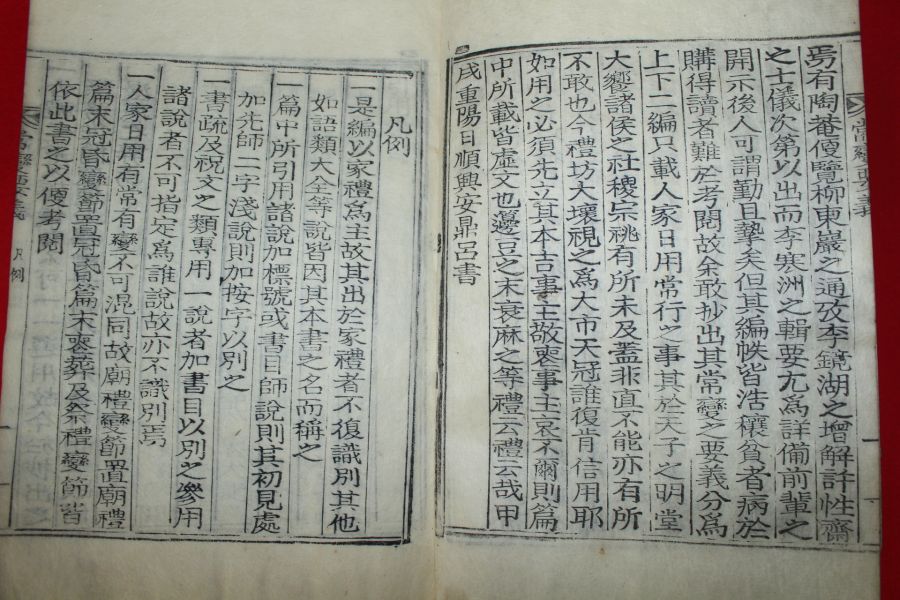 焉有陶菴便覽柳東巖之通攷李鏡湖之增解許性齋
之士儀次第以出而李寒洲之輯要尤爲詳備前輩之
開示後人可謂勤且摯矣但其編帙皆浩穰貧者病於
購得讀者難於考閱故余敢抄出其常變之要義分爲
上下二編只載人家日用常行之事其於天子之明堂
大饗諸侯之社稷宗祧有所未及蓋非直不能亦有所
不敢也今禮坊大壞視之爲大市天冠誰復肯信用耶
如用之必須先立其本吉事主敬喪事主哀不爾則篇
中所載皆虛文也籩豆之末衰麻之等禮云禮云哉甲
戌重陽日順興安鼎呂書
凡例
一是編以家禮爲主故其出於家禮者不復識別其他
如語類大全等說皆因其本書之名而稱之
一篇中所引用諸說加標號或書目師說則其初見處
加先師二字淺說則加按字以別之
一書疏及祝文之類專用一說者加書目以別之參用
諸說者不可指定爲誰說故亦不識別焉
一人家日用有常有變不可混同故廟禮變節置廟禮
篇末冠昏變節置冠昏篇末喪葬及祭禮變節皆
依此書之以便考閱
常變要義
凡例
常變要義